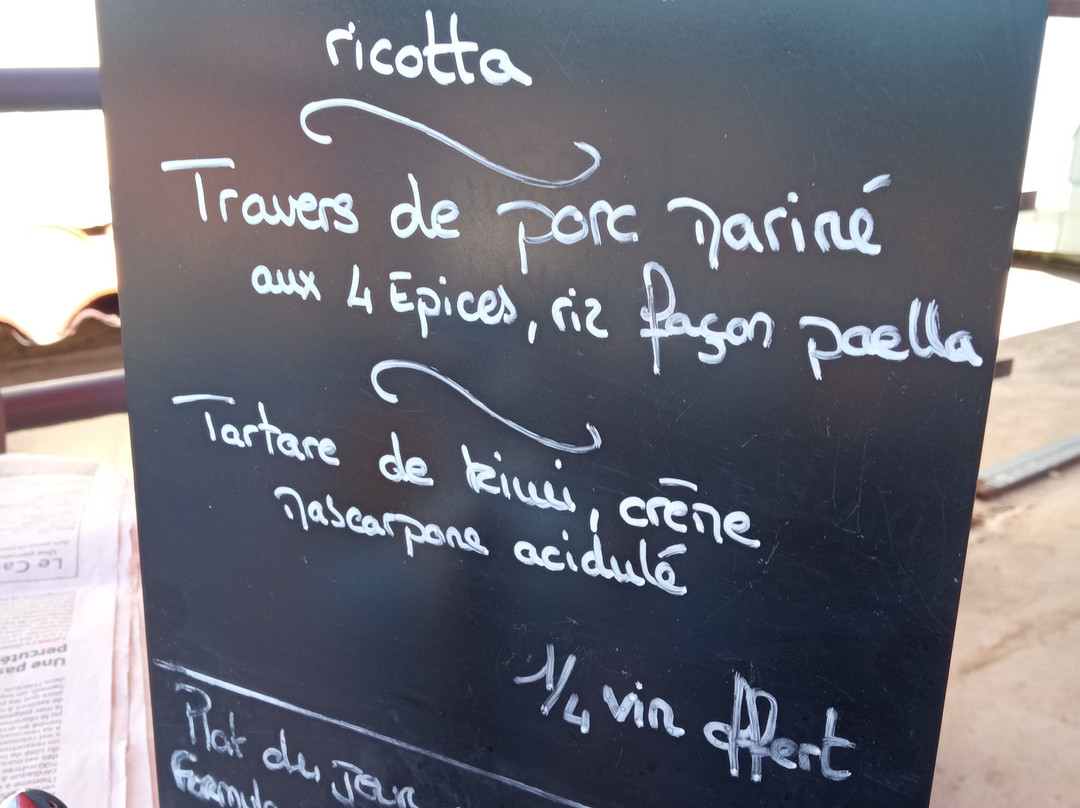 ricotta
Travers de porc mariné
aux 4 Epices, riz façon paella
Tartare de kiwi, crème
mascarpone acidulé
1/4 vin offert
Plat du jour
Formule
Une pas
percuté